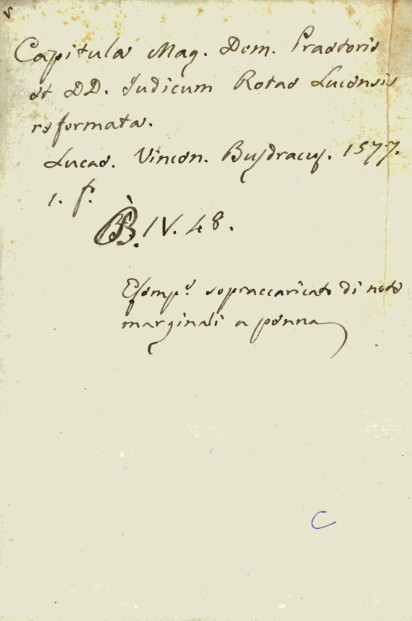 Capitula Mag. Dom. Praetoris
et DD. Judicum Rotae Lucensis
reformata.
Lucae. Vincen. Busdracus. 1577.
1. f.º
B. IV. 48.
Esemp.e sopraccaricato di note
marginali a penna
C